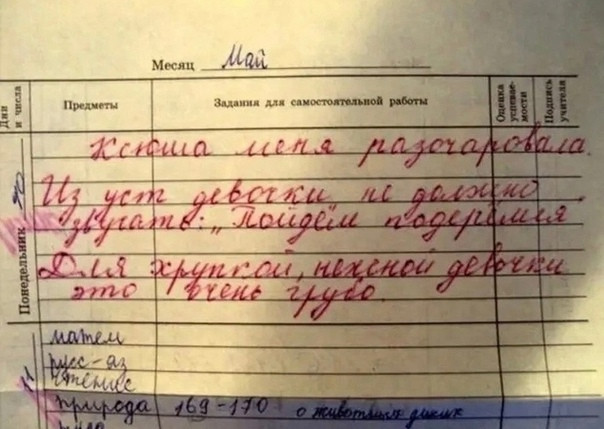 Месяц Май
Дни и числа
Предметы
Задания для самостоятельной работы
Оценка успевае-мости
Подпись учителя
Понедельник
Ксюша меня разочаровала.
Из уст девочки не должно
звучать: „Пойдём подерёмся
Для хрупкой, нежной девочки
это очень грубо.
матем
русс-яз
чтение
природа 169-170 о животных диких